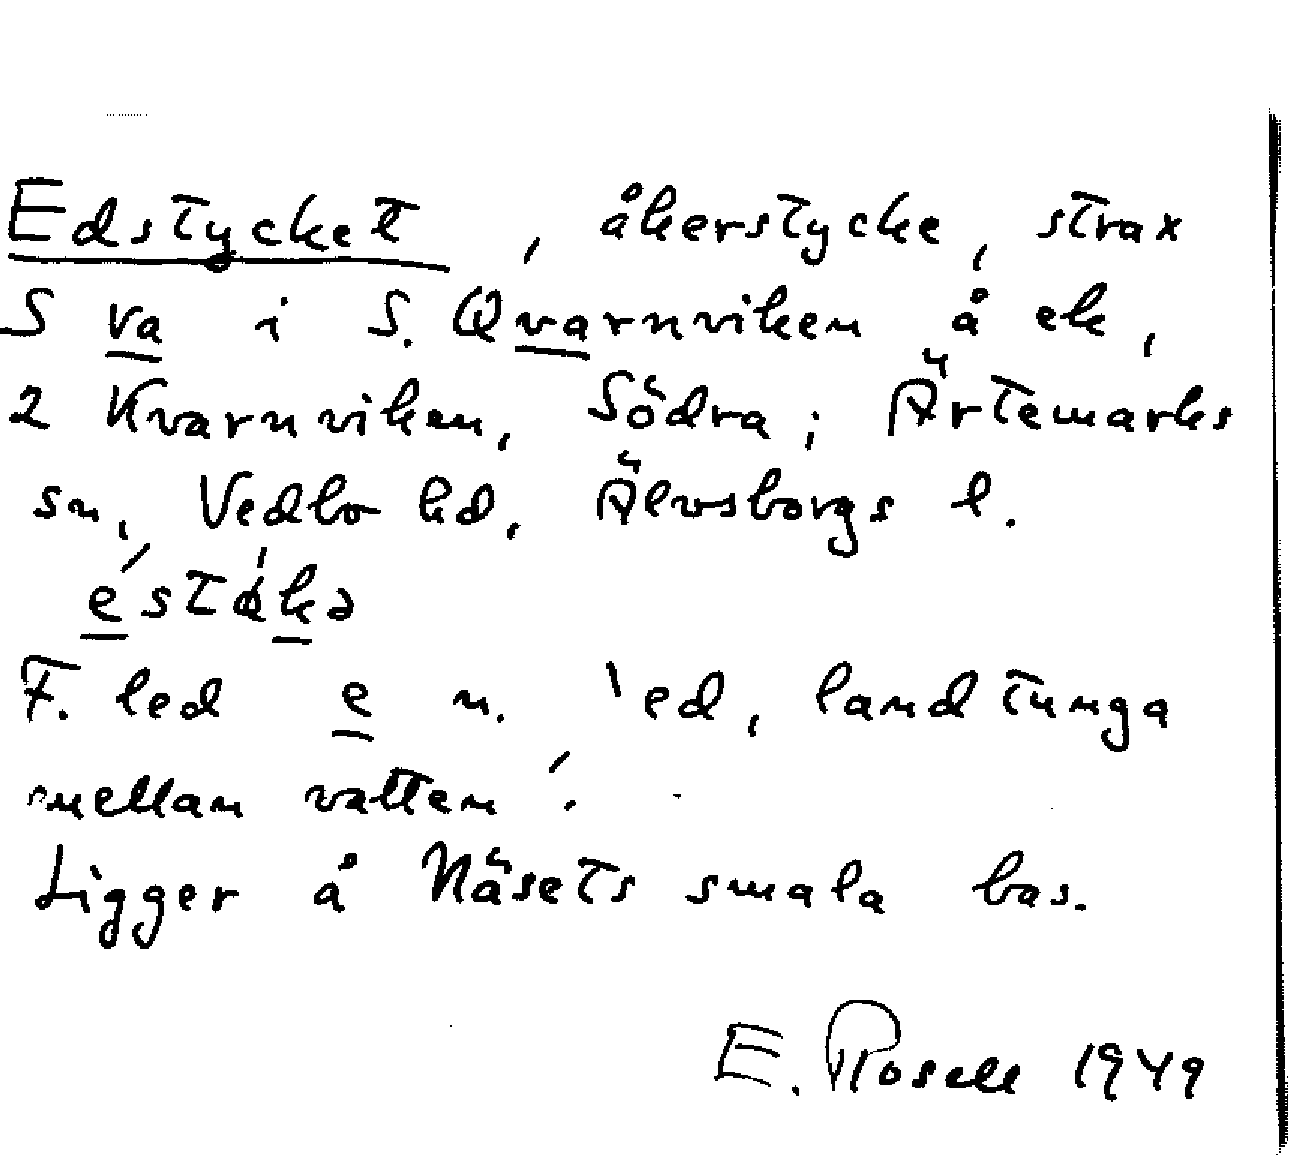 Edstycket, åkerstycke, strax
S va i S. Qvarnviken å ek,
2 Kvarnviken, Södra; Ärtemarks
sn, Vedbo hd, Älvsborgs l.
F. led e n. 'ed, landtunga
mellan vatten'.
Ligger å Näsets smala bas.
E. Rosell 1949